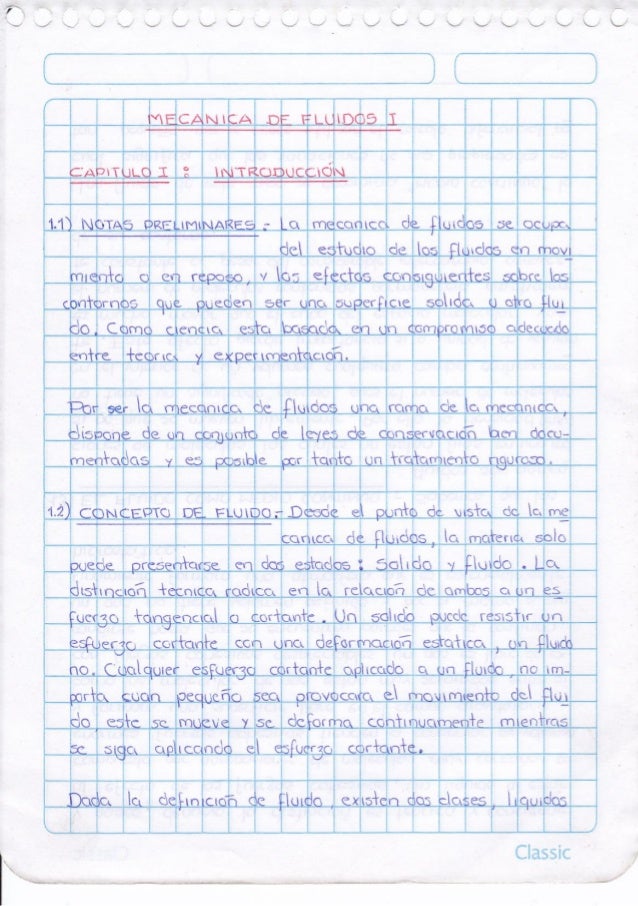 MECANICA DE FLUIDOS I
CAPITULO I : INTRODUCCIÓN
1.1) NOTAS PRELIMINARES.- La mecanica de fluidos se ocupa
del estudio de los fluidos en movi
miento o en reposo, y los efectos consiguientes sobre los
contornos que pueden ser una superficie solida u otro flui
do. Como ciencia esta basada en un compromiso adecuado
entre teoria y experimentación.
Por ser la mecanica de fluidos una rama de la mecanica,
dispone de un conjunto de leyes de conservación bien docu-
mentadas y es posible por tanto un tratamiento riguroso.
1.2) CONCEPTO DE FLUIDO.- Desde el punto de vista de la me
canica de fluidos, la materia solo
puede presentarse en dos estados : Solido y fluido. La
distinción tecnica radica en la relación de ambos a un es
fuerzo tangencial o cortante. Un solido puede resistir un
esfuerzo cortante con una deformación estatica, un fluido
no. Cualquier esfuerzo cortante aplicado a un fluido, no im-
porta cuan pequeño sea provocara el movimiento del flui
do, este se mueve y se deforma continuamente mientras
se siga aplicando el esfuerzo cortante.
Dada la definición de fluido, existen dos clases, liquidos
Classic